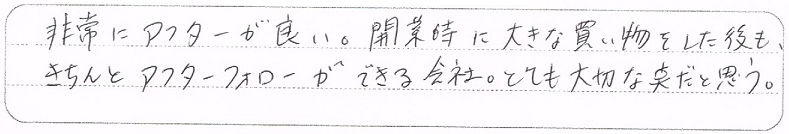 非常にアフターが良い。開業時に大きな買い物をした後も、
きちんとアフターフォローができる会社。とても大切な点だと思う。